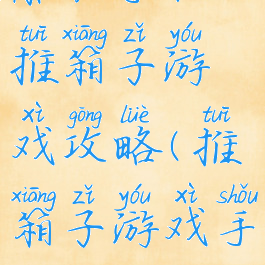 tuī xiāng zǐ yóu
推箱子游
xì gōng lüè tuī
戏攻略(推
xiāng zǐ yóu xì shǒu
箱子游戏手